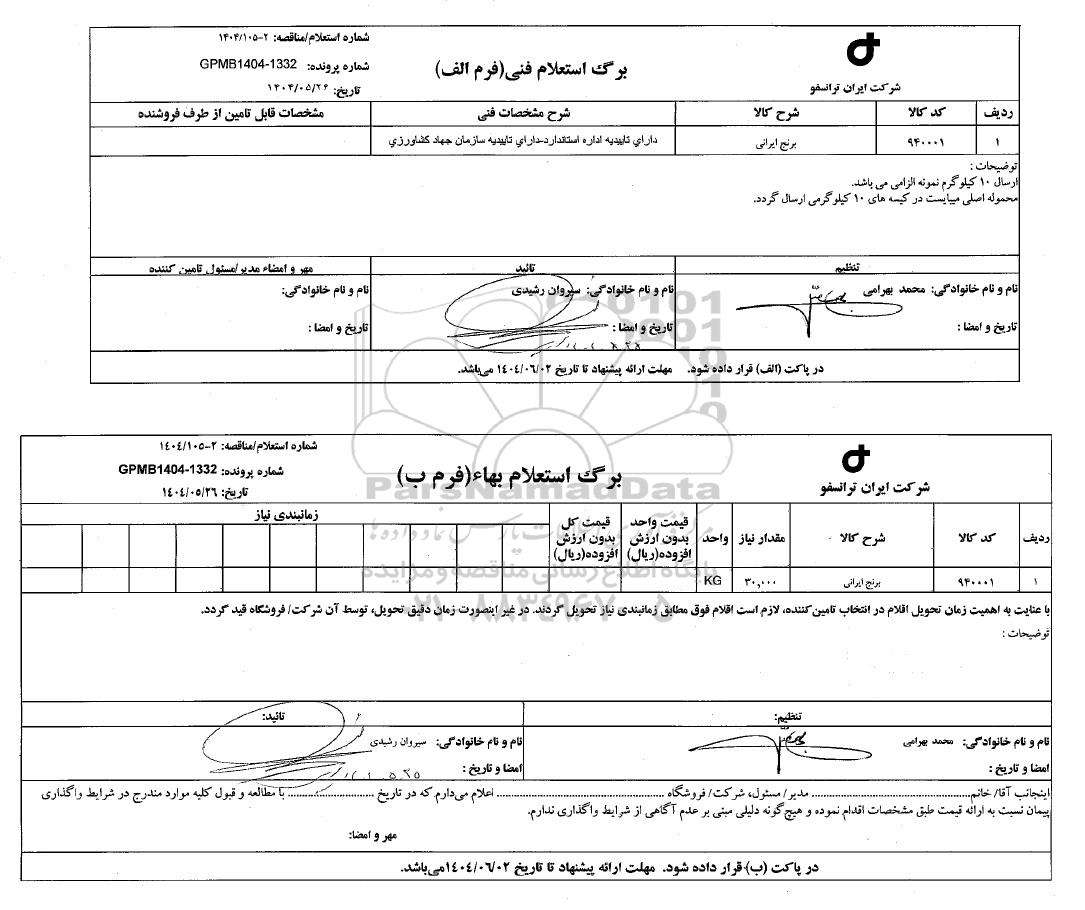 شماره استعلام/مناقصه: ۱۴۰۴/۱۰۵-۲
برگ استعلام فنی(فرم الف)
شماره پرونده: GPMB1404-1332
تاریخ: ۱۴۰۴/۰۵/۲۶
شرکت ایران ترانسفو
ردیف کد کالا شرح کالا شرح مشخصات فنی مشخصات قابل تامین از طرف فروشنده
۱ ۹۴۰۰۰۱ برنج ایرانی دارای تاییدیه اداره استاندارد-دارای تاییدیه سازمان جهاد کشاورزی
توضیحات :
ارسال ۱۰ کیلوگرم نمونه الزامی می باشد.
محموله اصلی میبایست در کیسه های ۱۰ کیلوگرمی ارسال گردد.
تنظیم تائید مهر و امضاء مدیر/مسئول تامین کننده
نام و نام خانوادگی: محمد بهرامی نام و نام خانوادگی: سیروان رشیدی نام و نام خانوادگی:
تاریخ و امضا : تاریخ و امضا : تاریخ و امضا :
در پاکت (الف) قرار داده شود. مهلت ارائه پیشنهاد تا تاریخ ۱۴۰۴/۰۶/۰۲ می‌باشد.
شماره استعلام/مناقصه: ۱۴۰۴/۱۰۵-۲
برگ استعلام بهاء(فرم ب)
شماره پرونده: GPMB1404-1332
شرکت ایران ترانسفو
تاریخ: ۱۴۰۴/۰۵/۲۶
ParsNamadData
ردیف کد کالا شرح کالا مقدار نیاز واحد قیمت واحد بدون ارزش افزوده(ریال) قیمت کل بدون ارزش افزوده(ریال) زمانبندی نیاز
۱ ۹۴۰۰۰۱ برنج ایرانی ۳۰,۰۰۰ KG
پایگاه اطلاع رسانی مناقصه و مزایده
با عنایت به اهمیت زمان تحویل اقلام در انتخاب تامین‌کننده، لازم است اقلام فوق مطابق زمانبندی نیاز تحویل گردند. در غیر اینصورت زمان دقیق تحویل، توسط آن شرکت/ فروشگاه قید گردد.
۰۲۱-۸۸۳۴۹۶۷۰-۵
توضیحات :
تنظیم: تائید:
نام و نام خانوادگی: محمد بهرامی نام و نام خانوادگی: سیروان رشیدی
امضا و تاریخ : امضا و تاریخ :
اینجانب آقا/ خانم........................ مدیر/ مسئول، شرکت/ فروشگاه ........................ اعلام می‌دارم که در تاریخ ........................ با مطالعه و قبول کلیه موارد مندرج در شرایط واگذاری
پیمان نسبت به ارائه قیمت طبق مشخصات اقدام نموده و هیچ‌گونه دلیلی مبنی بر عدم آگاهی از شرایط واگذاری ندارم.
مهر و امضا:
در پاکت (ب) قرار داده شود. مهلت ارائه پیشنهاد تا تاریخ ۱۴۰۴/۰۶/۰۲می‌باشد.